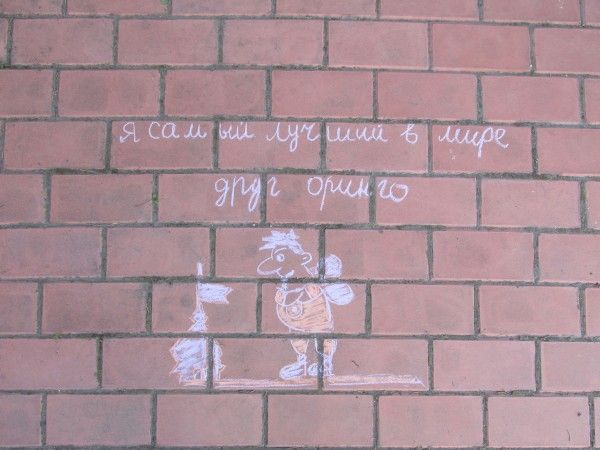 я самый лучший в мире
друг оринго